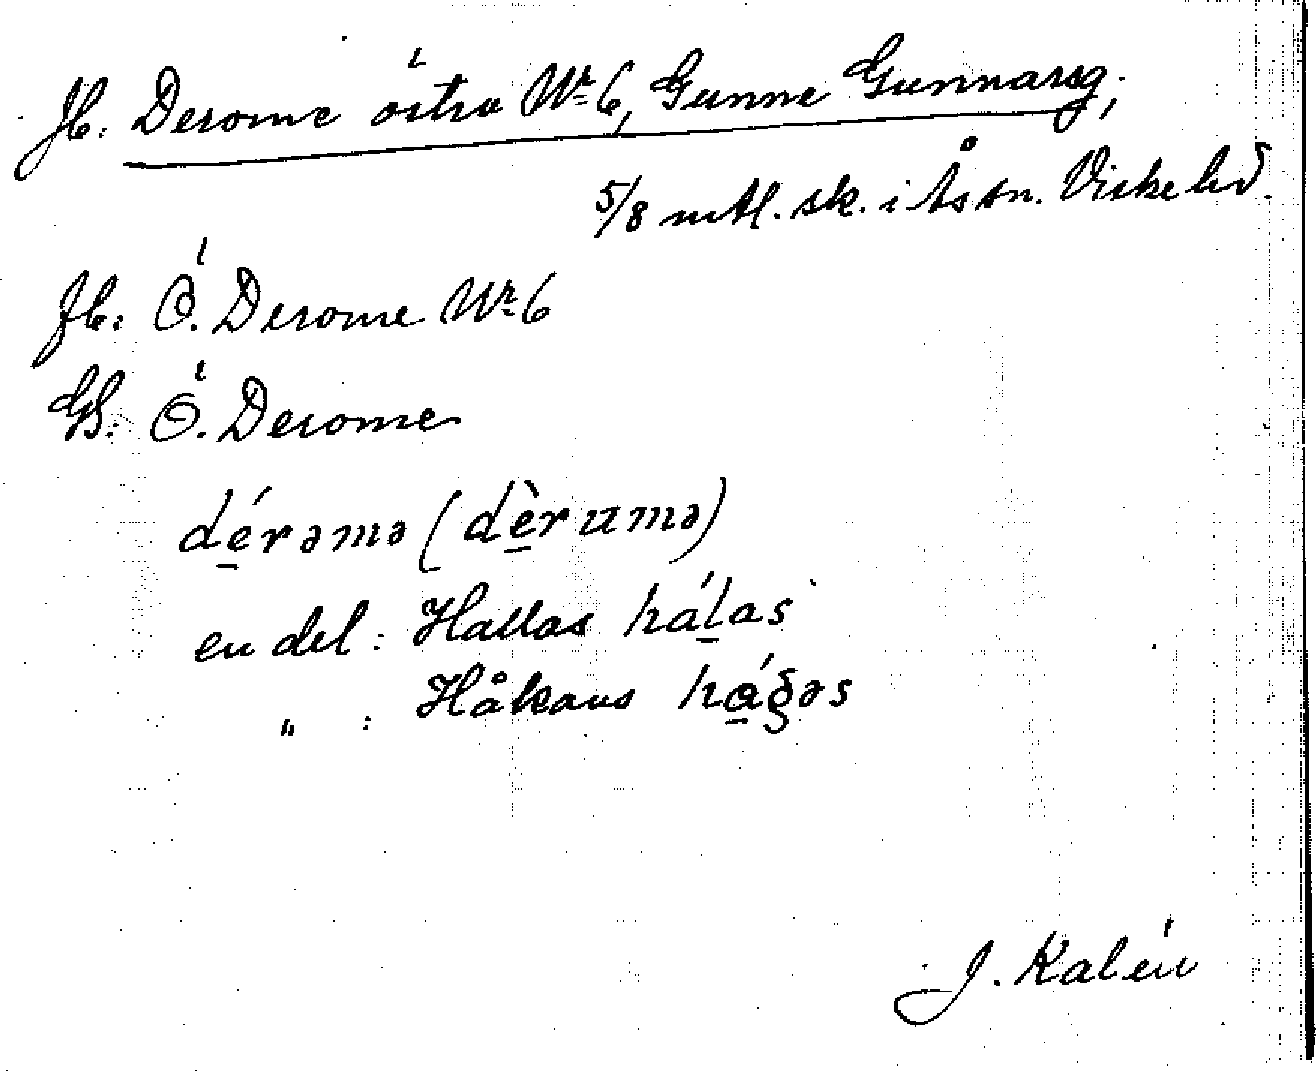 Jb. Derome östra Nr 6, Gunne Gunnarsg;
5/8 mtl. sk. i Ås sn. Viske hd.
Jb: Ö. Derome Nr 6
GS: Ö. Derome
dérəmə (dèrumə)
en del: Hallas hálas
„ : Håkans
J. Kalén